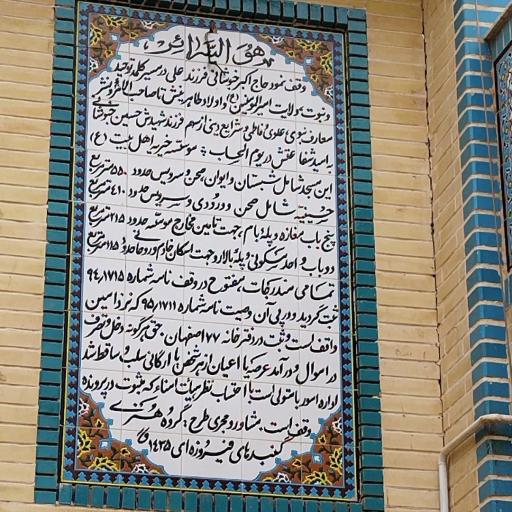 هو الباقی
وقف نمود حاج اکبر خیشانی فرزند علی در مسیر کلمه توحید
و نبوت و ولایت امیرالمومنین (ع) و اولاد طاهرینش تا صاحب الامر
معارف نبوی علوی فاطمی و شرایع دینی از سهم فرزند شهیدش حسین
به امید شفاعتش در یوم الحساب به موسسه خیریه اهل بیت (ع)
این مسجد شامل شبستان و ایوان و صحن و سرویس حدود ۵۵۰ مترمربع
حسینیه شامل صحن و ورودی و سرویس حدود ۴۱۰ مترمربع
پنج باب مغازه و پله بام جهت تامین مخارج موسسه حدود ۱۱۵ مترمربع
دو باب واحد مسکونی و پله بالا رو جهت اسکان خادم و روحانی حدود ۱۱۵ مترمربع
تمامی مندرجات مفتوح در وقف نامه شماره ۹۴٫۱۷۱۵
ثبت گردید و در پی آن وصیت نامه شماره ۹۵٫۱۷۱۱ که نیز از همین
واقف است و ثبت در دفترخانه ۱۷۷ اصفهان حق هرگونه دخل و تصرف
در اموال و درآمد عرصه یا اعیان از هر شخص یا ارگانی سلب و ساقط شد
و اداره امور با متولی است با احتساب نظر هیات امناء که مثبوت در پرونده
وقف است مشاور و مجری طرح: گروه هنری
گنبدهای فیروزه ای ۱۴۳۵ ق